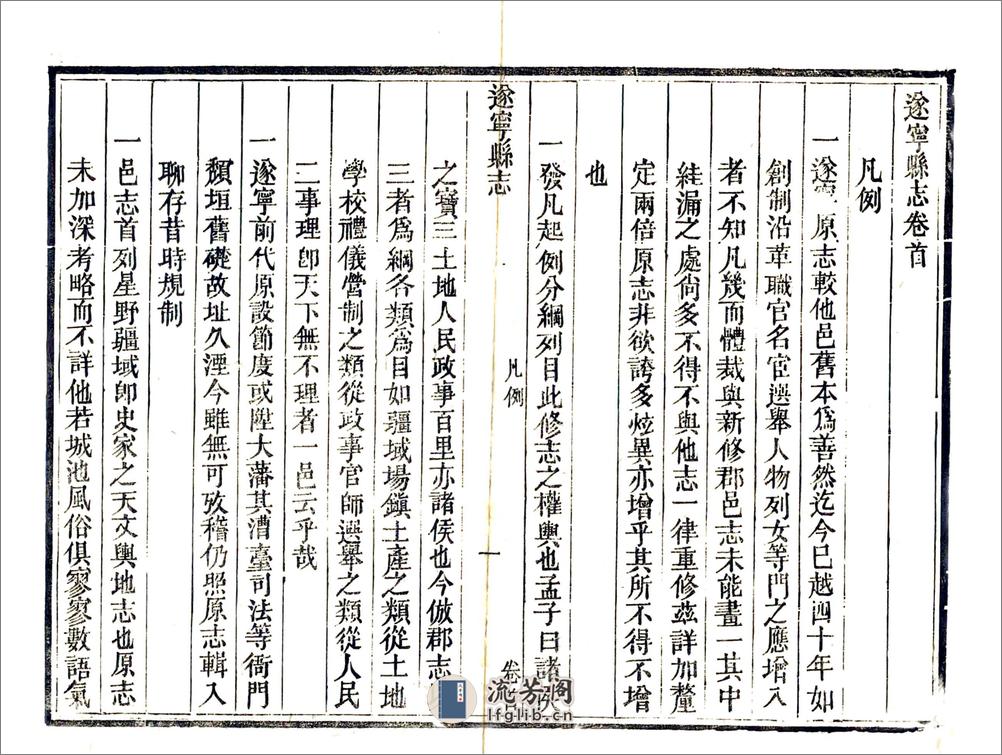 遂寧縣志卷首
凡例
一遂寧原志較他邑舊本爲善然迄今已越四十年如
創制沿革職官名宦選舉人物列女等門之應增入
者不知凡幾而體裁與新修郡邑志未能畫一其中
絓漏之處尙多不得不與他志一律重修茲詳加釐
定兩倍原志非欲誇多炫異亦增乎其所不得不增
也
一發凡起例分綱列目此修志之權輿也孟子曰諸侯
遂寧縣志
凡例
卷首
一
之寶三土地人民政事百里亦諸侯也今倣郡志
三者爲綱各類爲目如疆域場鎭土產之類從土地
學校禮儀營制之類從政事官師選舉之類從人民
二事理卽天下無不理者一邑云乎哉
一遂寧前代原設節度或陞大藩其漕臺司法等衙門
頽垣舊礎故址久湮今雖無可攷稽仍照原志輯入
聊存昔時規制
一邑志首列星野疆域卽史家之天文輿地志也原志
未加深考略而不詳他若城池風俗俱寥寥數語氣
流芳閣
lfglib.cn